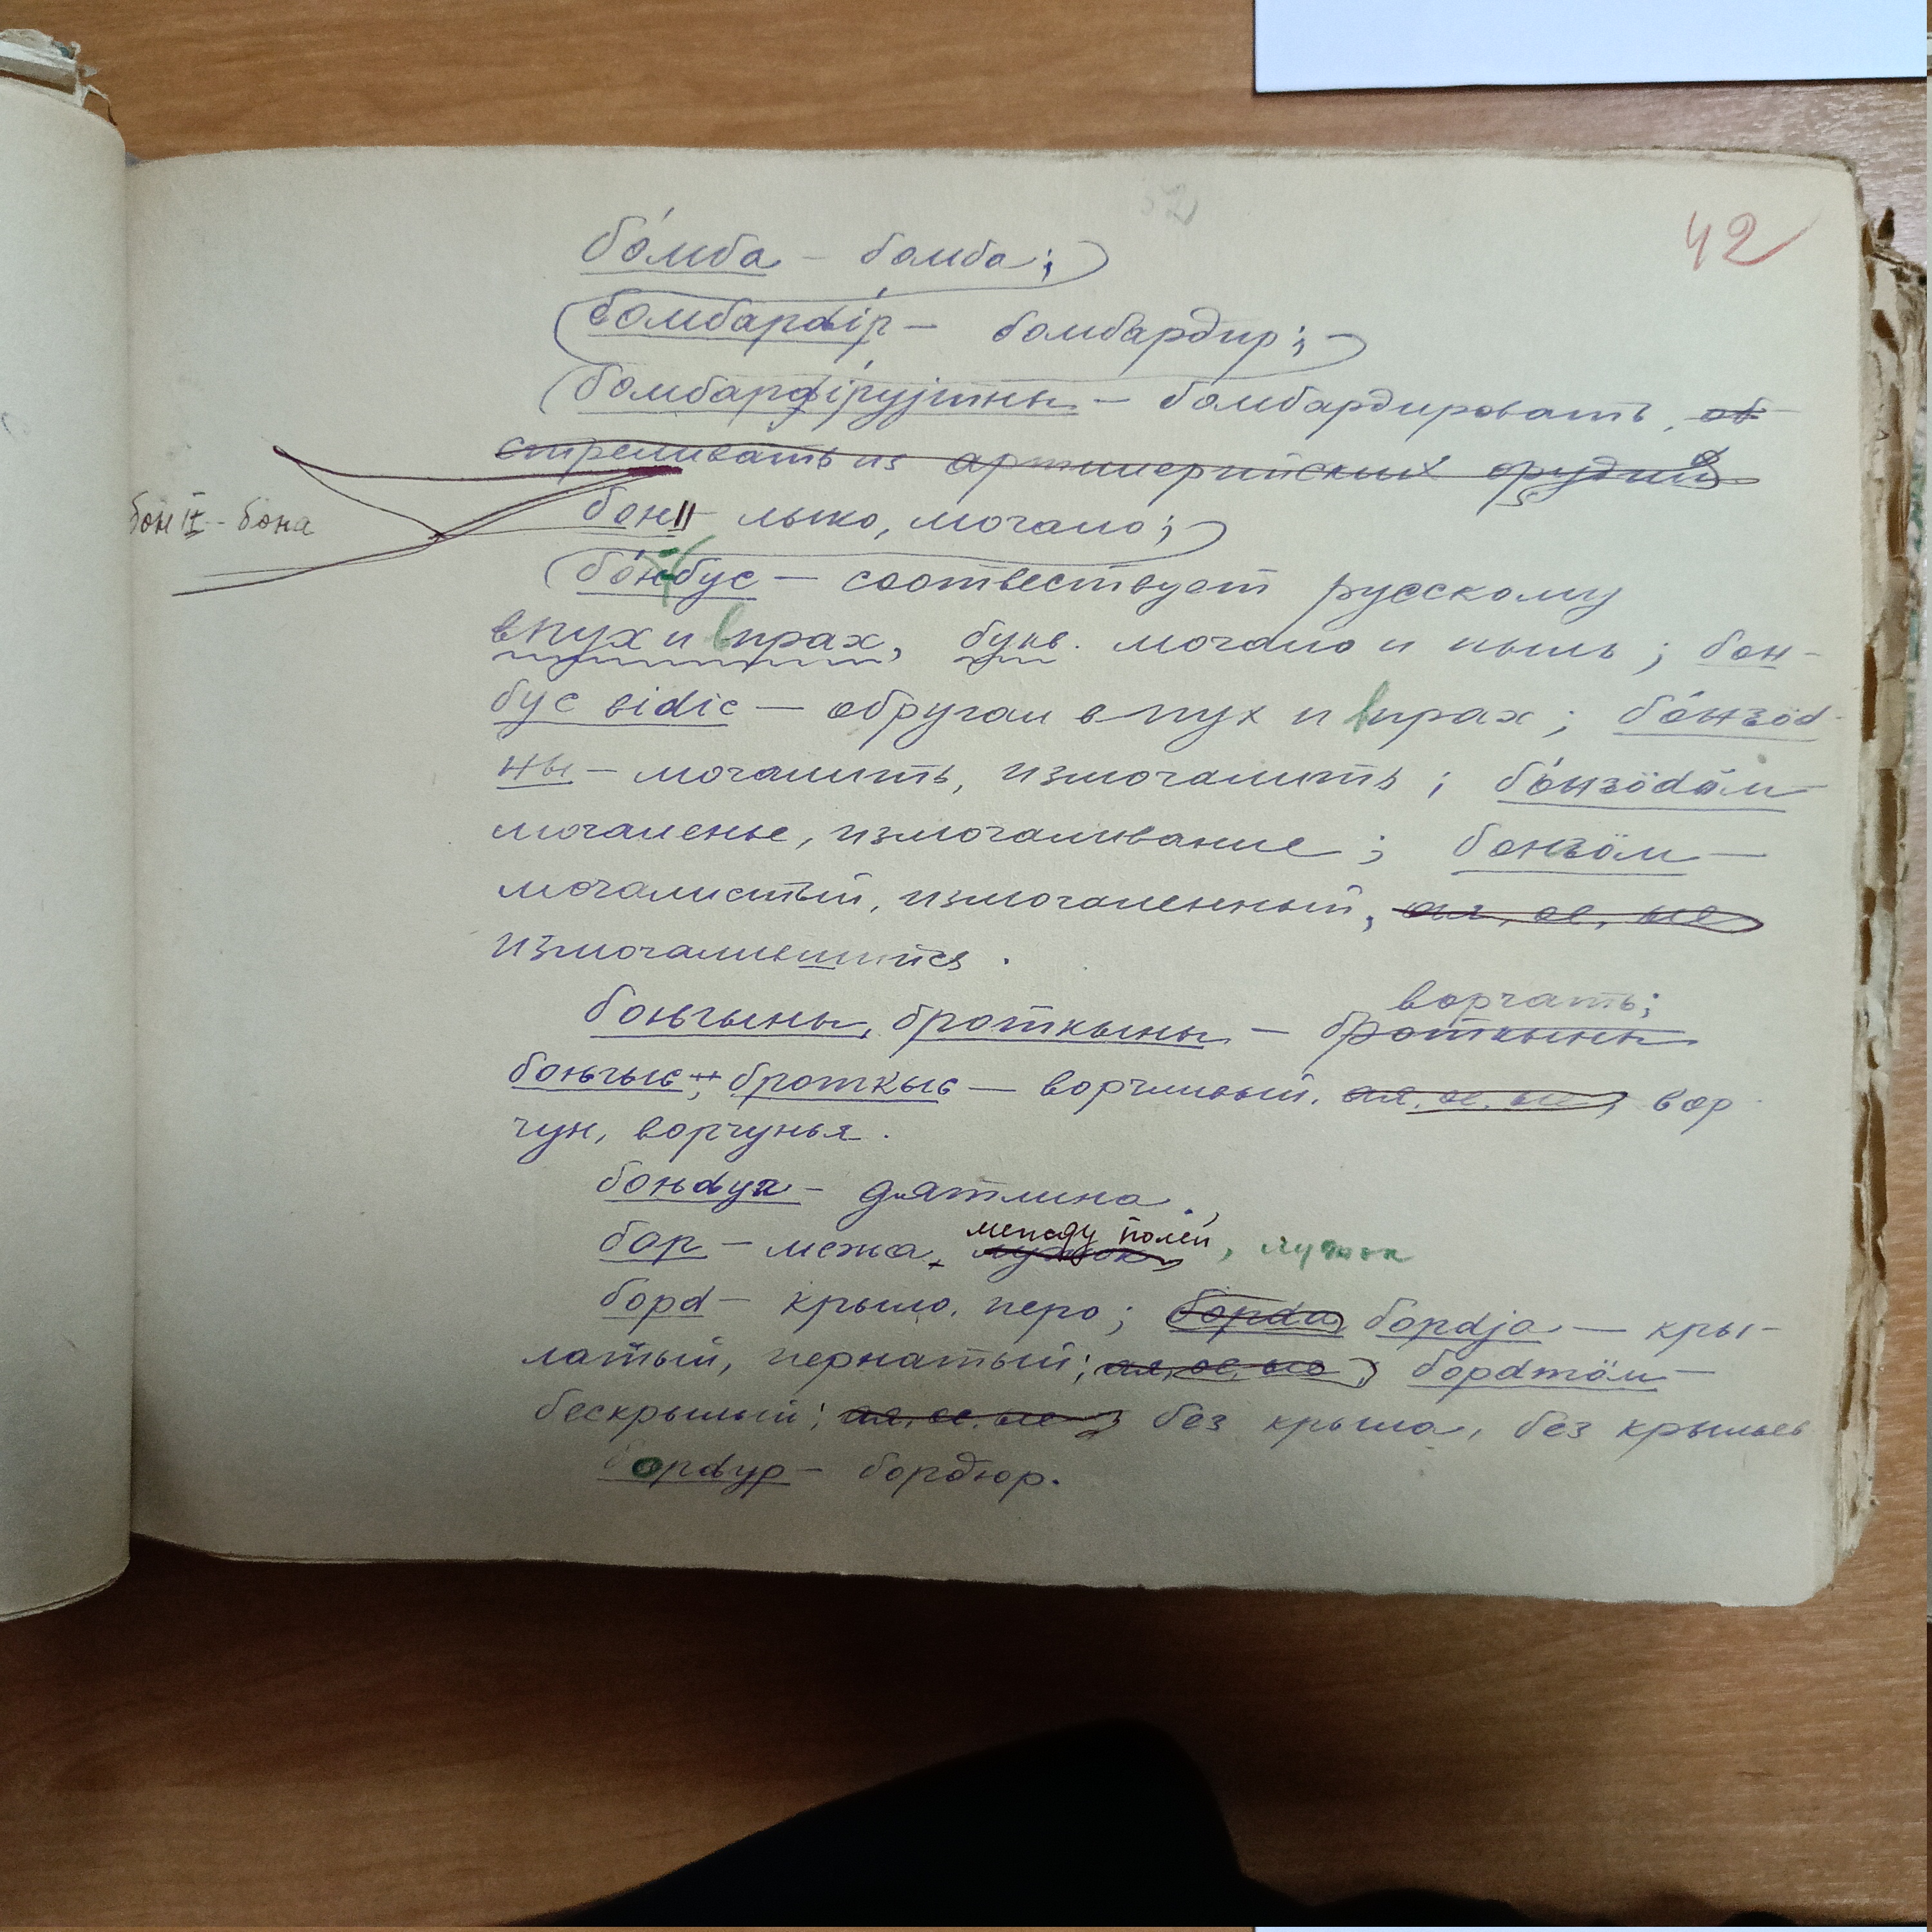 52
42
бо́мба – бомба;
бомбардíр – бомбардир; –
бомбардíруjтны – бомбардировать, об-
стреливать из артиллерийских орудий
бон I – бона
бон II – лыко, мочало;
бо́нбус – соотвествует русскому
в пух и в прах, букв. мочало и пыль; бон-
бус вidic – обругал в пух и в прах; бо́нзöd-
ны – мочалить, измочалить; бо́нзöдöм –
мочаленье, измочаливание; бонзöм –
мочалистый, измочаленный, ая, ое, ые
измочалившийся.
ворчать;
боњгыны, броткыны – броткыны
боњгыс, броткыс – ворчливый, ая, ое, ые, вор
чун, ворчунья.
боњдук – дятлина.
между полей
бор – межа, лужок, лужок
борд – крыло, перо; борда бордjа – кры-
латый, пернатый; ая, ое, ые, бордтöм –
бескрылый; ая, ое, ые, без крыла, без крыльев
бордур – бордюр.